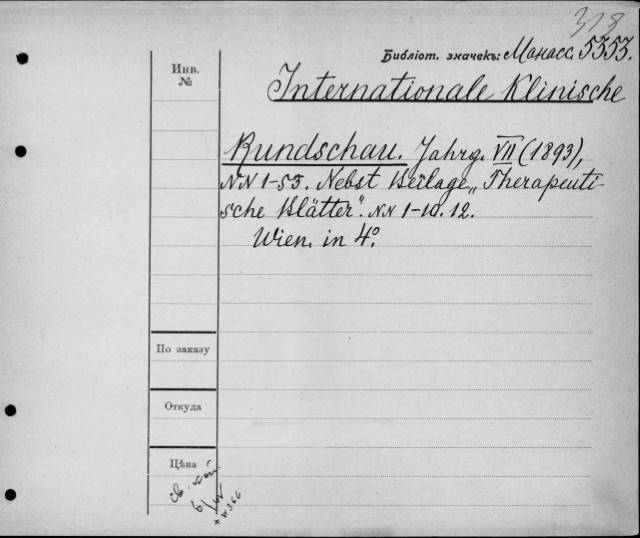 318
Библіот. значекъ: Манасс. 5353.
Инв.
№
Internationale Klinische
Rundschau. Jahrg. VII (1893),
NN 1-53. Nebst Beilage „Therapeuti-
sche Blätter". NN 1-10. 12.
Wien. in 4°.
По заказу
Откуда
Цѣна